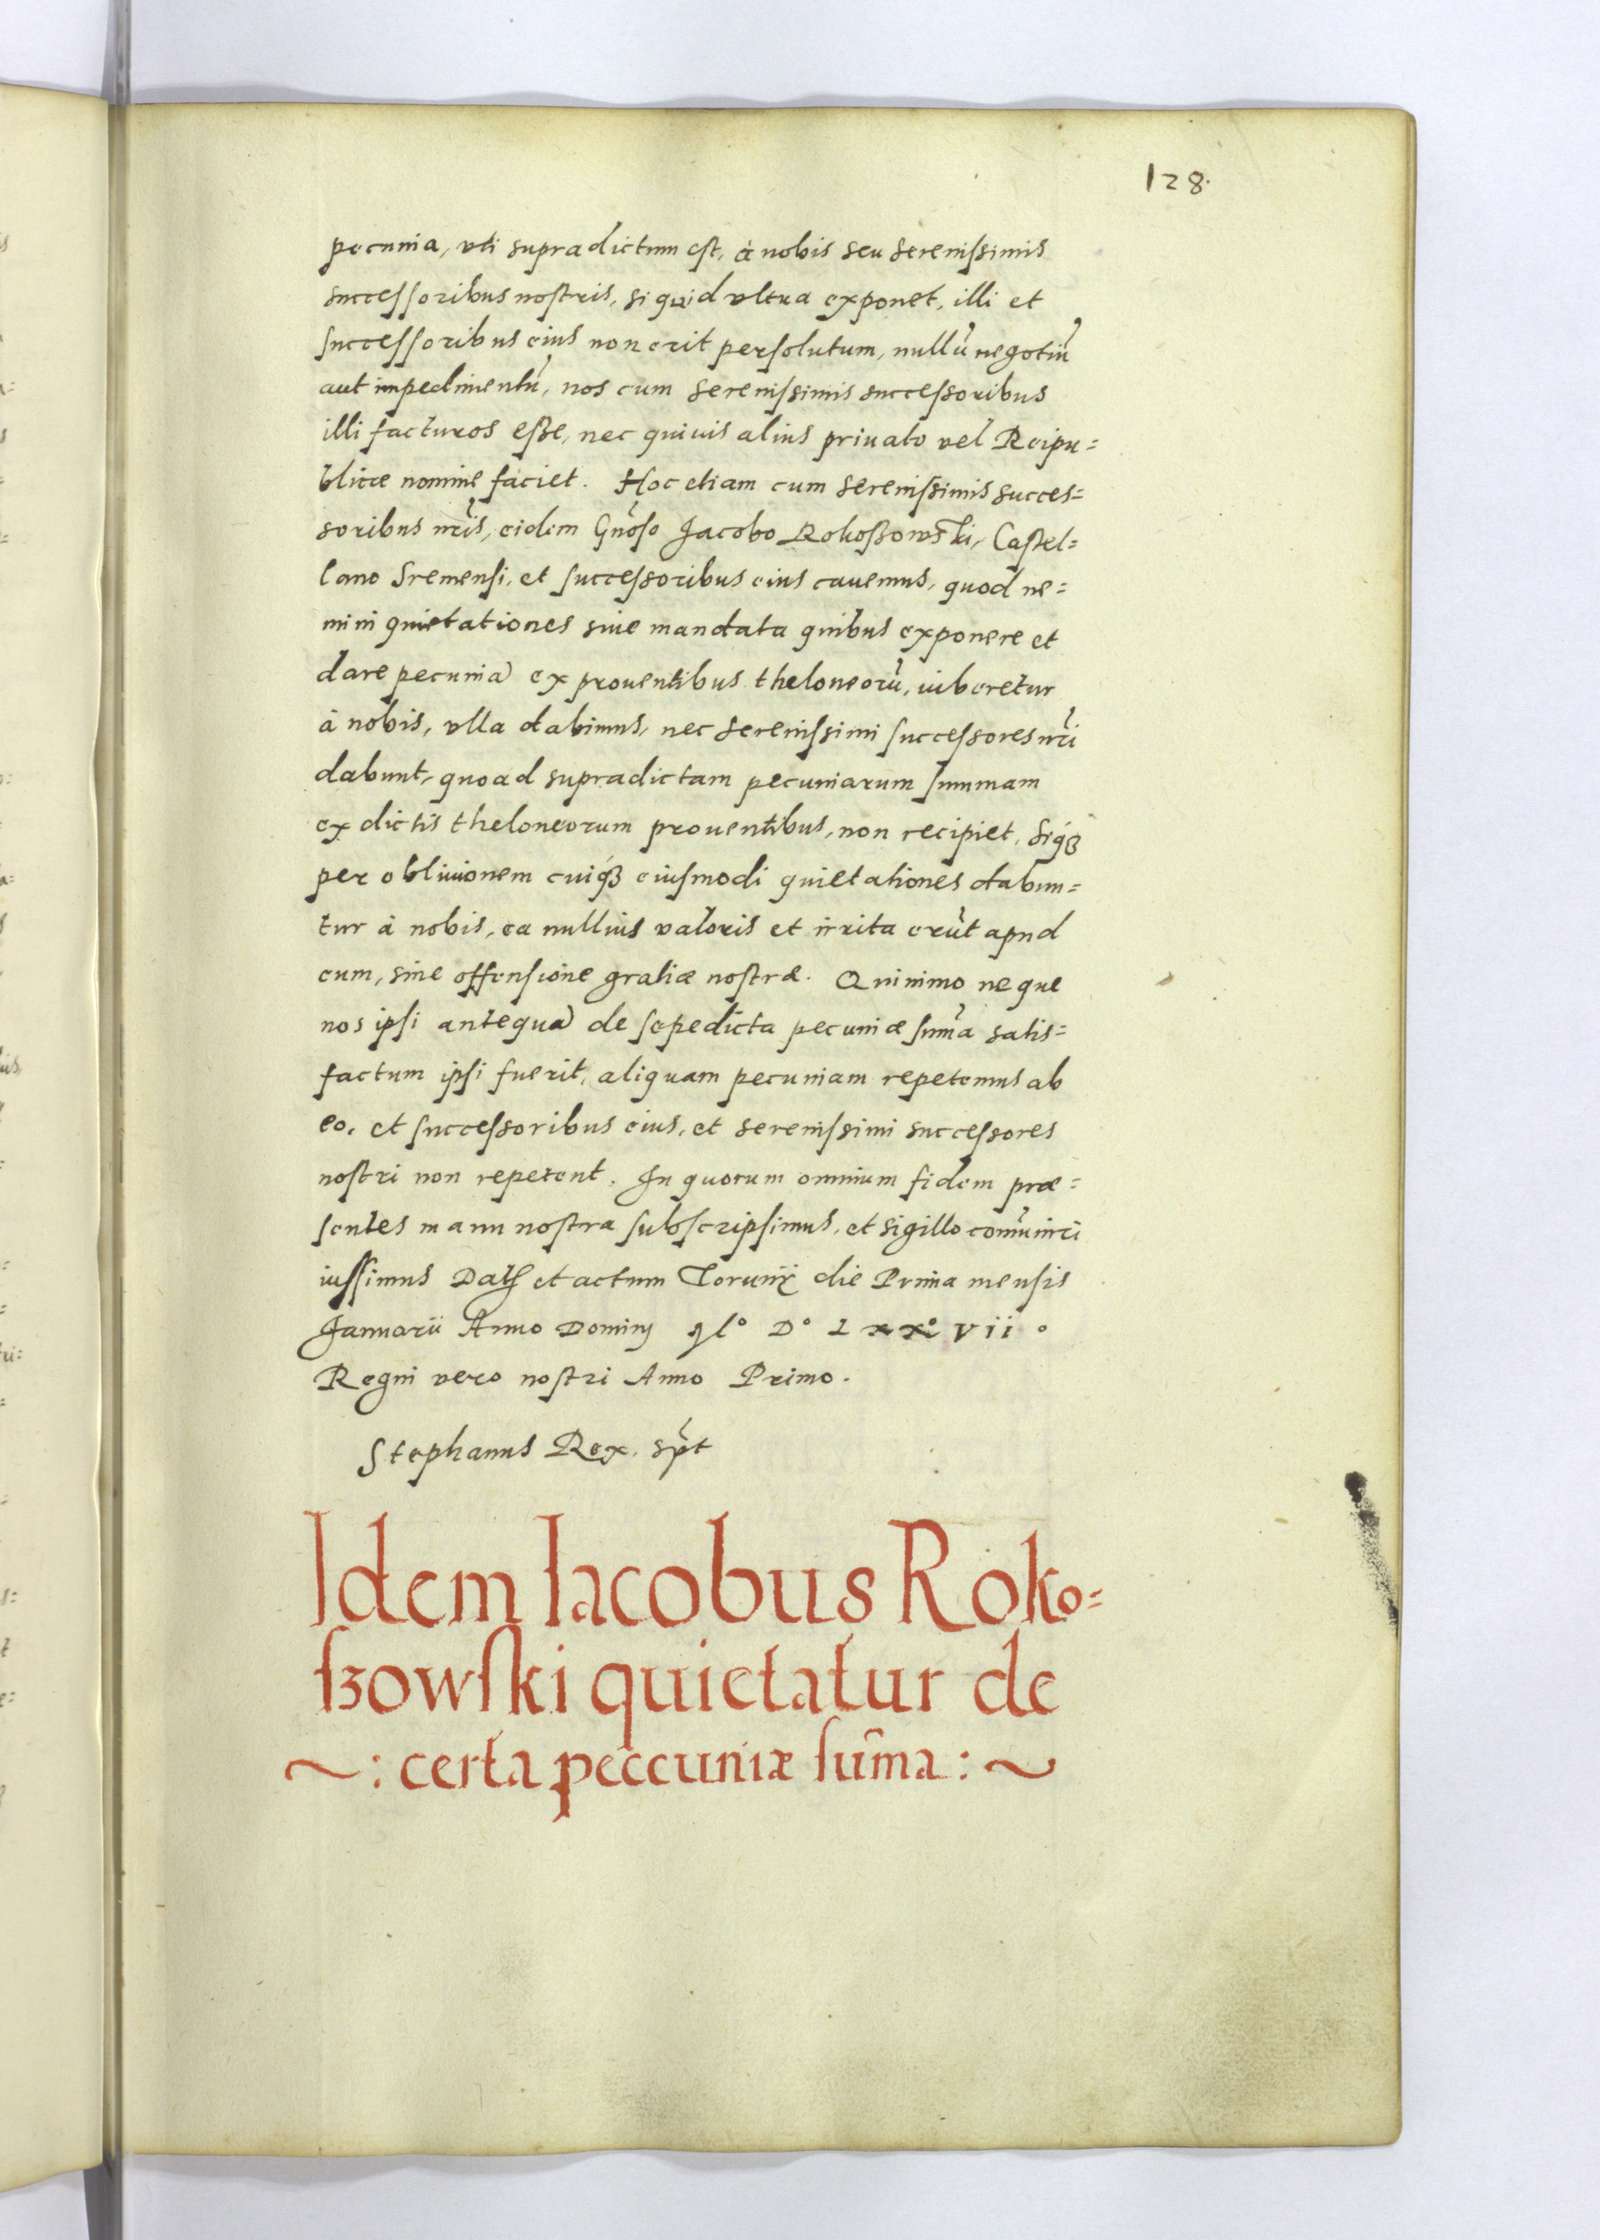 128.
pecunia, vti supradictum est, à nobis seu serenissimis
successoribus nostris, si quid vltra exponet, illi et
successoribus eius non erit persolutum, nullũ negotiũ
aut impedimentũ, nos cum serenissimis successoribus
illi facturos esse, nec quiuis alius priuato vel Reipu=
blicæ nomine faciet. Hoc etiam cum serenissimis succes=
soribus nr̃is, eidem Gñoso Jacobo Rokoszowski, Castel=
lano Sremensi, et successoribus eius cauemus, quod ne=
mini quietationes siue mandata quibus exponere et
dare pecuniã ex prouentibus theloneorũ, iuberetur
à nobis, vlla dabimus, nec serenissimi successores nr̃i
dabunt, quoad supradictam pecuniarum summam
ex dictis theloneorum prouentibus, non recipiet, siqꝫ
per obliuionem cuiqꝫ eiusmodi quietationes dabun=
tur à nobis, ea nullius valoris et irrita erũt apud
eum, sine offensione gratiæ nostræ. Quinimo neque
nos ipsi antequã de sepedicta pecuniæ sum̃a satis=
factum ipsi fuerit, aliquam pecuniam repetemus ab
eo, et successoribus eius, et serenissimi successores
nostri non repetent. In quorum omnium fidem præ=
sentes manu nostra subscripsimus, et sigillo com̃uniri
iussimus Datꝭ et actum Torunij die Prima mensis
Januarii Anno Dominj Mº Dº Lxxº vii º
Regni vero nostri Anno Primo.
Stephanus Rex. sp̃t
Idem Iacobus Roko=
szowski quietatur de
~: certa peccuniæ sum̃a :~